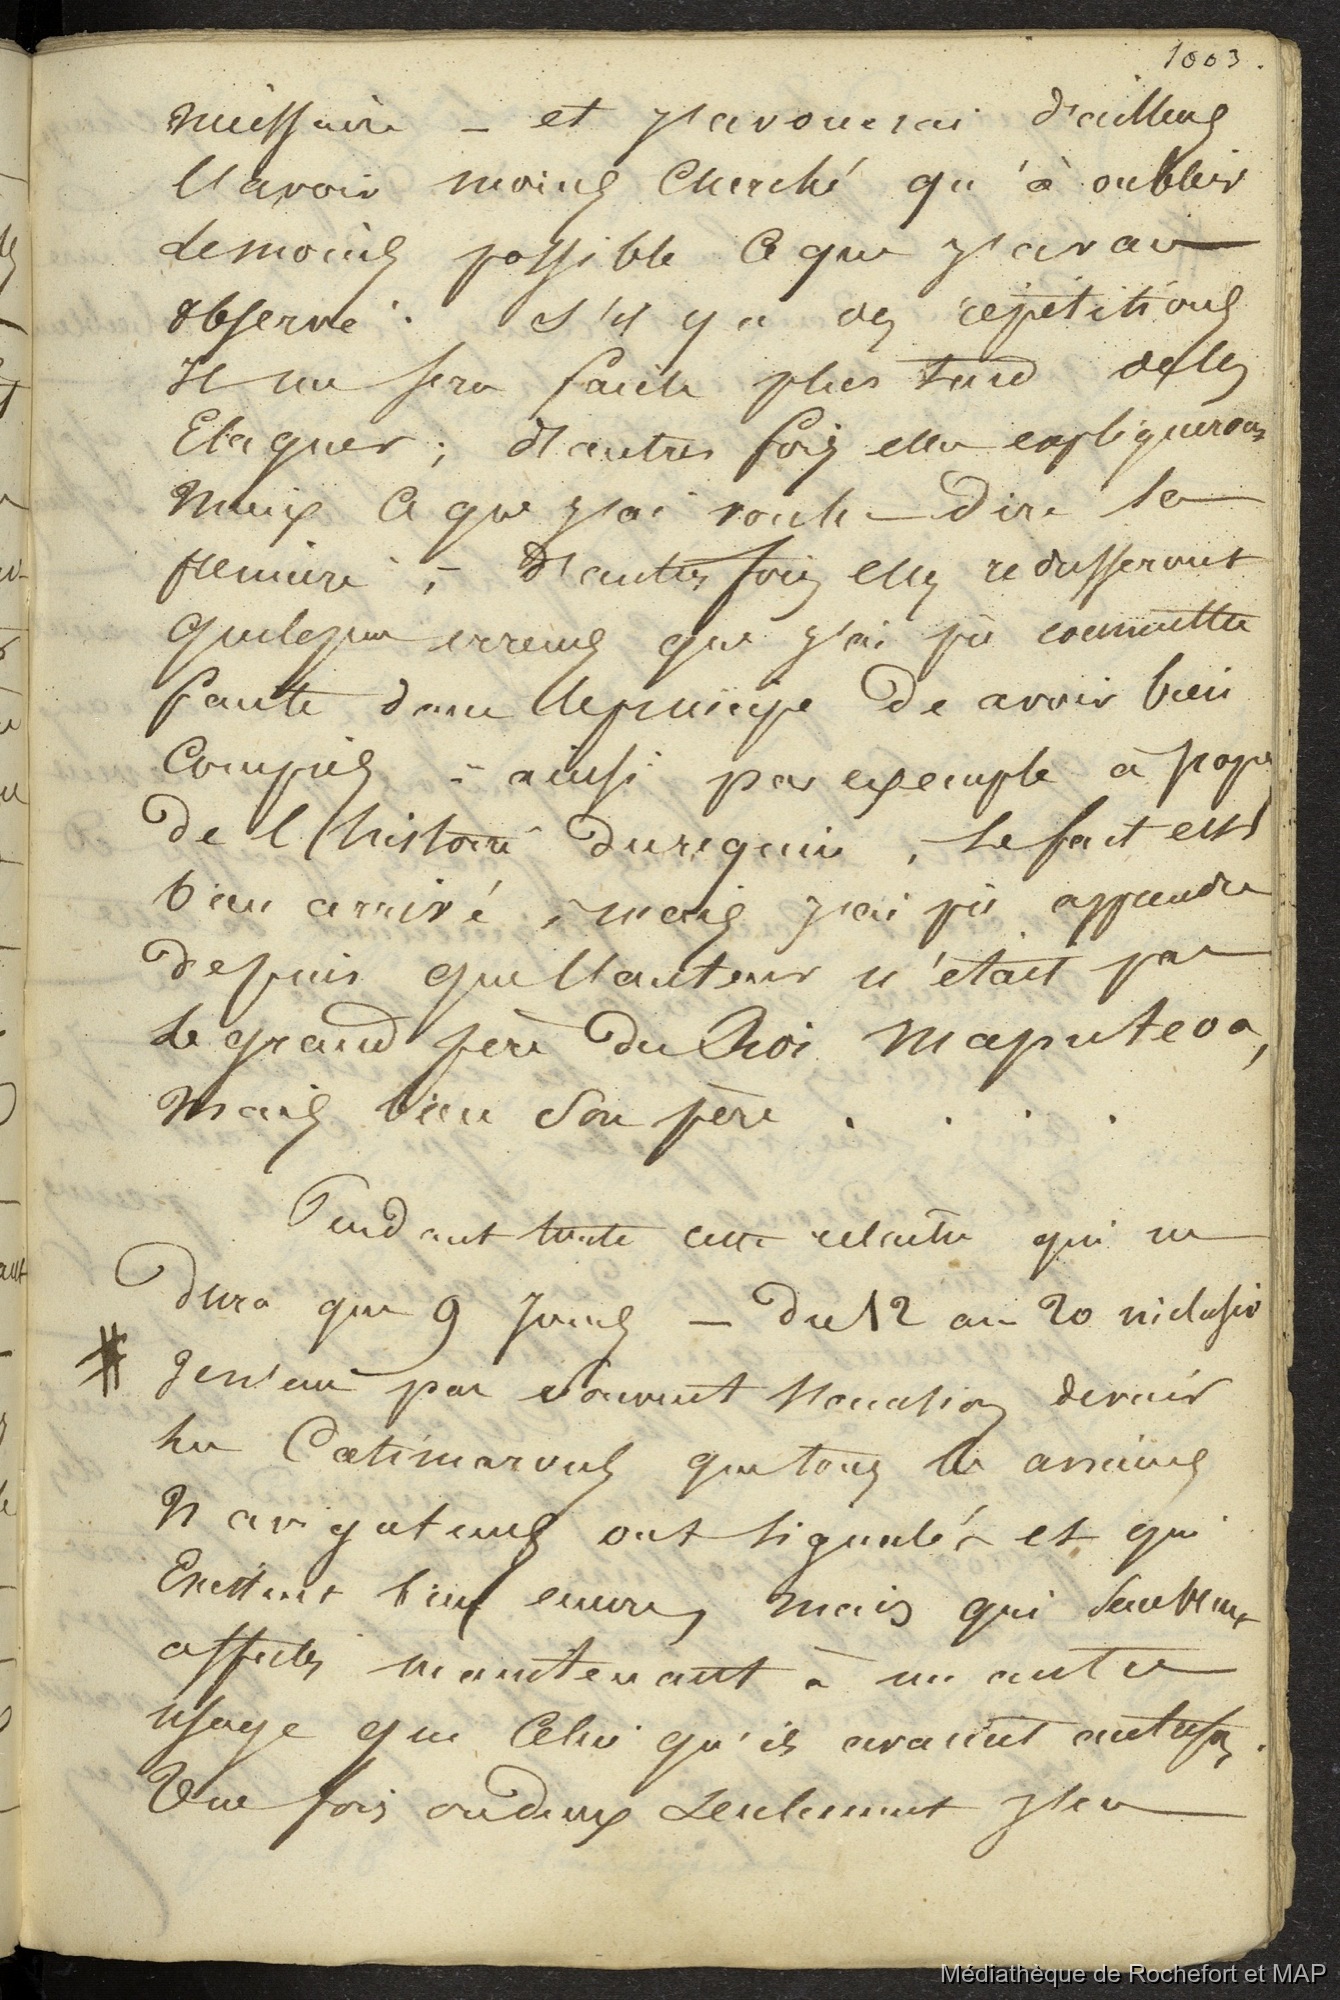 1003.
nécessaire – et j'avouerai d'ailleurs
l'avoir moins cherché qu'à oublier
le moins possible ce que j'avais
observé. S'il y a des répétitions
il me sera facile plus tard de les
élaguer ; d'autres fois elles expliqueront
mieux ce que j'ai voulu dire la
première ; – d'autres fois elles redresseront
quelques erreurs que j'ai pû commettre
faute dans le principe de avoir bien
compris – ainsi par exemple à propos
de l'histoire du requin, le fait est
bien arrivé, mais j'ai pû apprendre
depuis que l'auteur n'était pas
le grand père du Roi Maputeoa,
mais bien son père . . . .
Pendant toute cette relache qui ne
dura que 9 jours – du 12 au 20 inclusiv
je n'eus pas souvent l'occasion de voir
les Catimarons que tous les anciens
Navigateurs ont signalés et qui
Existent bien encore, mais qui semblent
affectés maintenant à un autre
usage que celui qu'ils avaient autrefois.
Une fois ou deux seulement j'en
Médiathèque de Rochefort et MAP